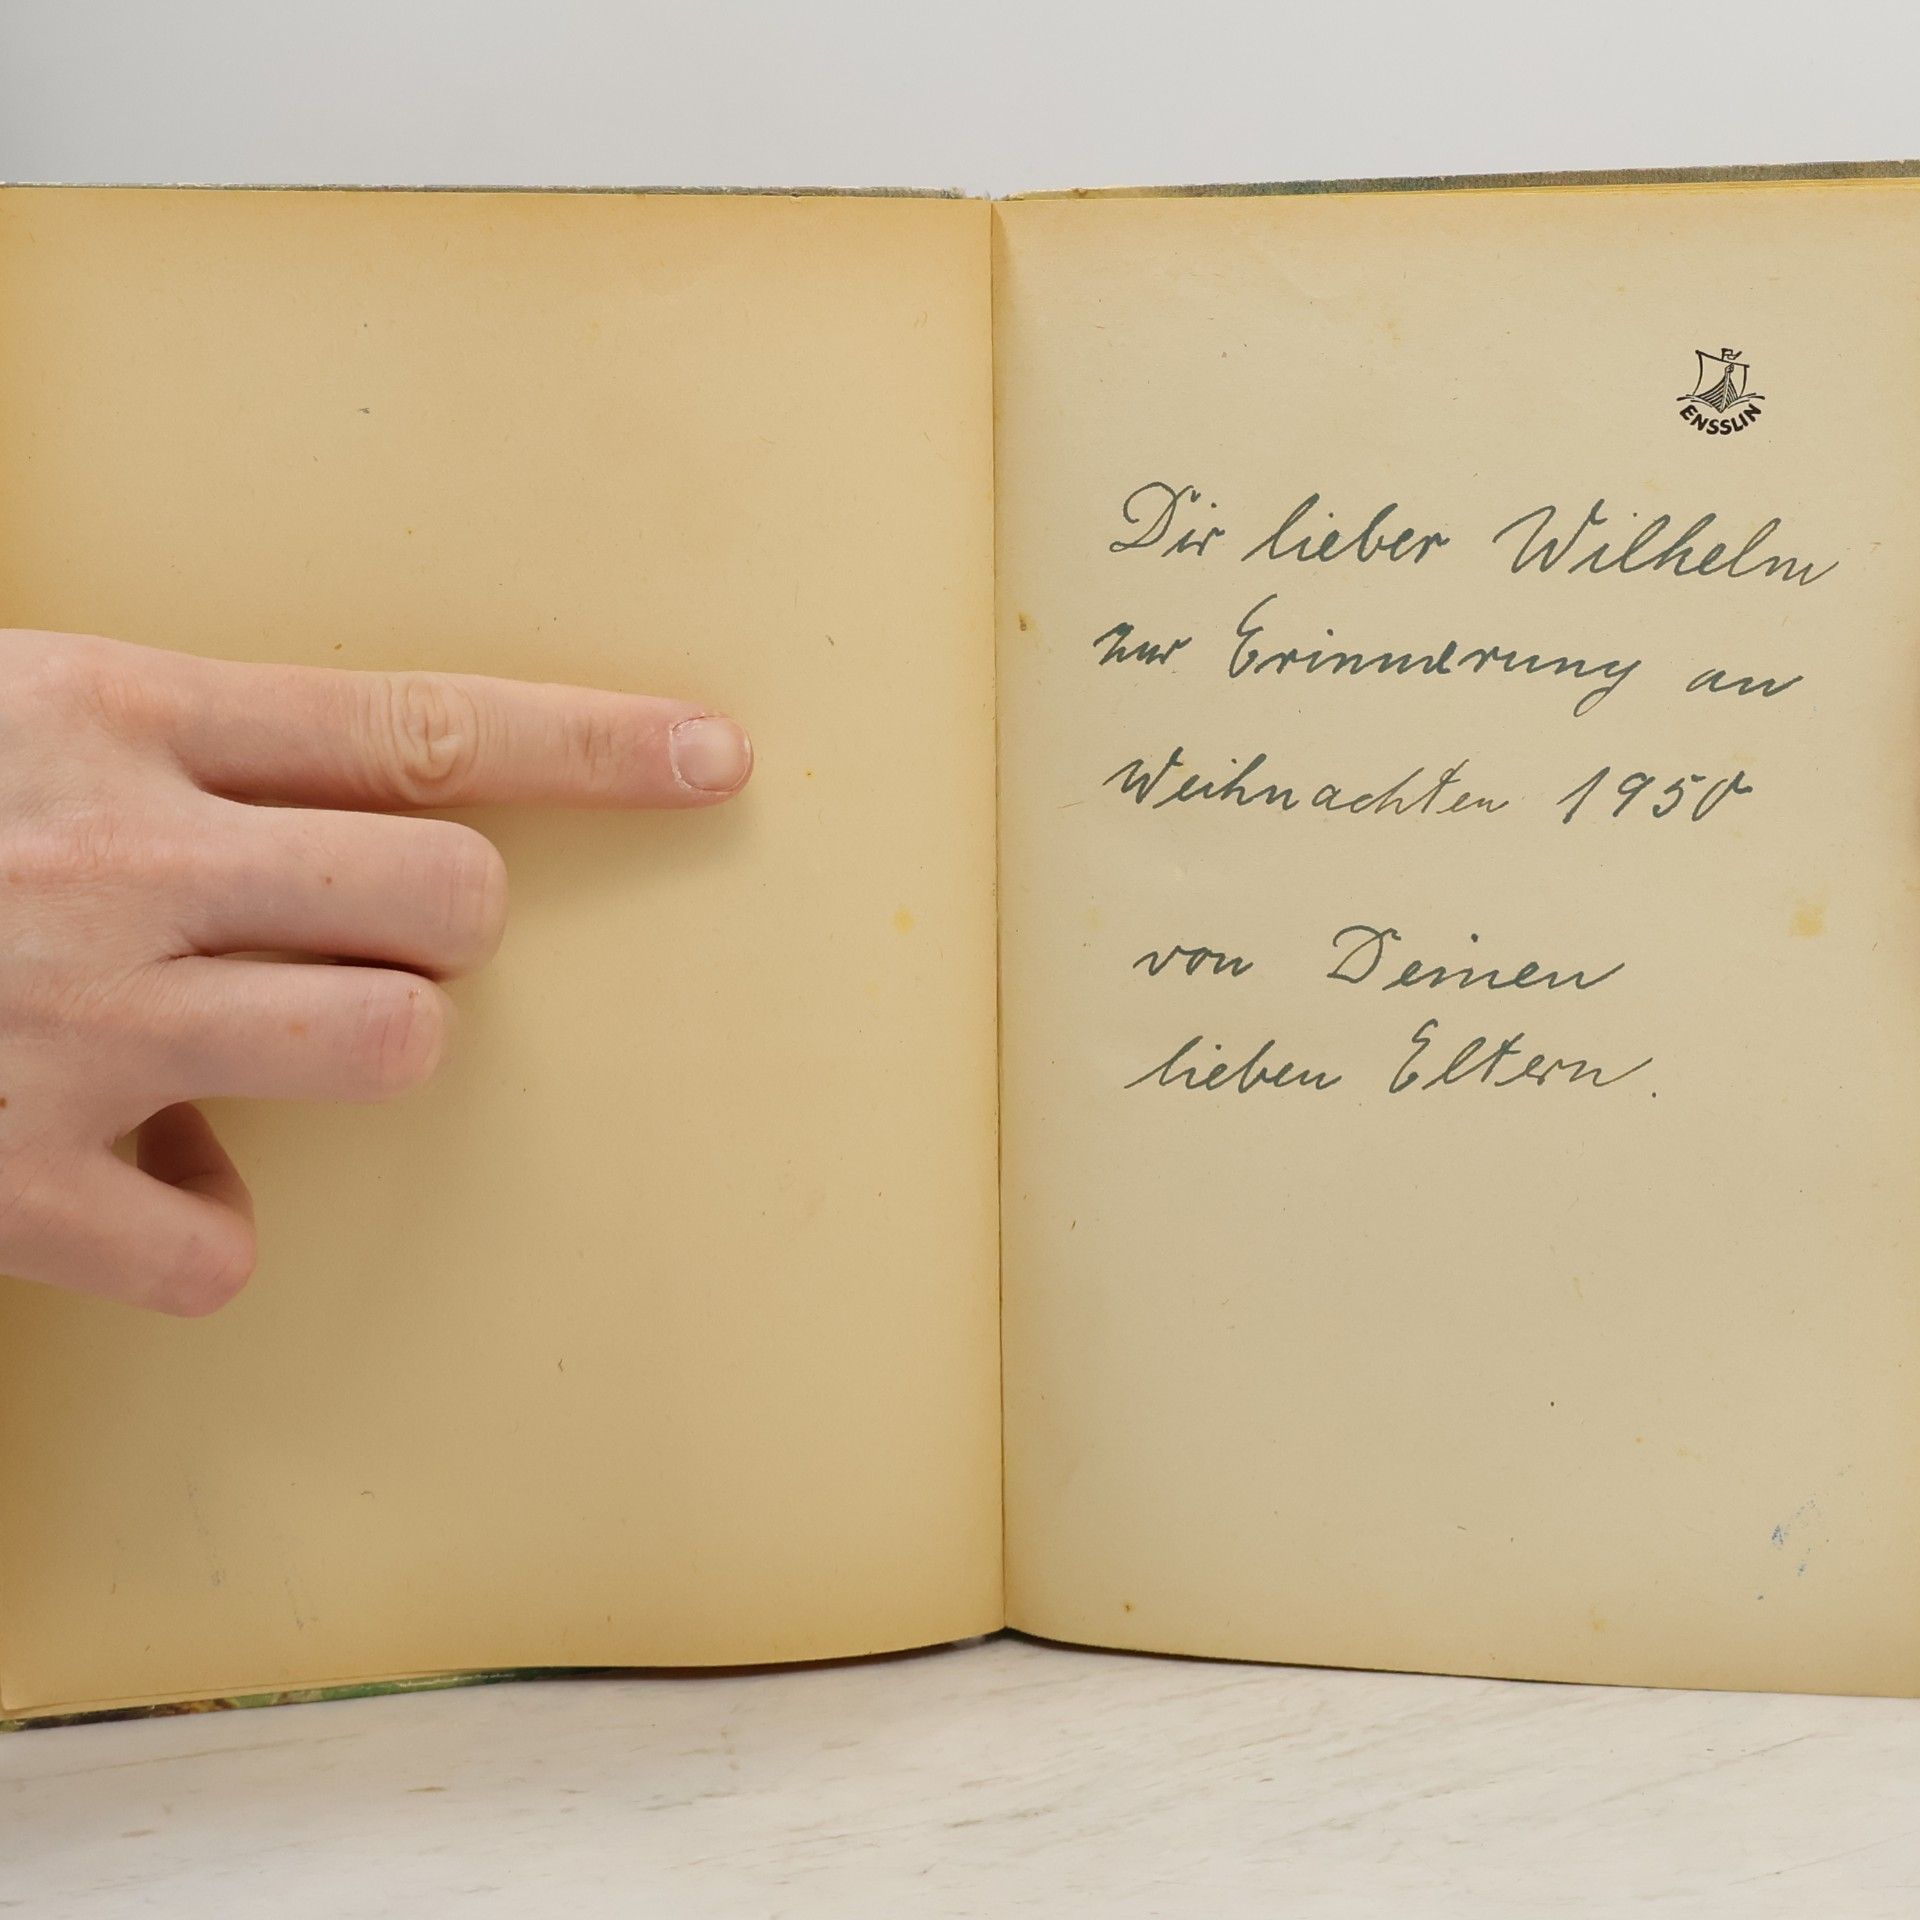 ENSSLIN
Dir lieber Wilhelm
zur Erinnerung an
Weihnachten 1950
von Deinen
lieben Eltern.